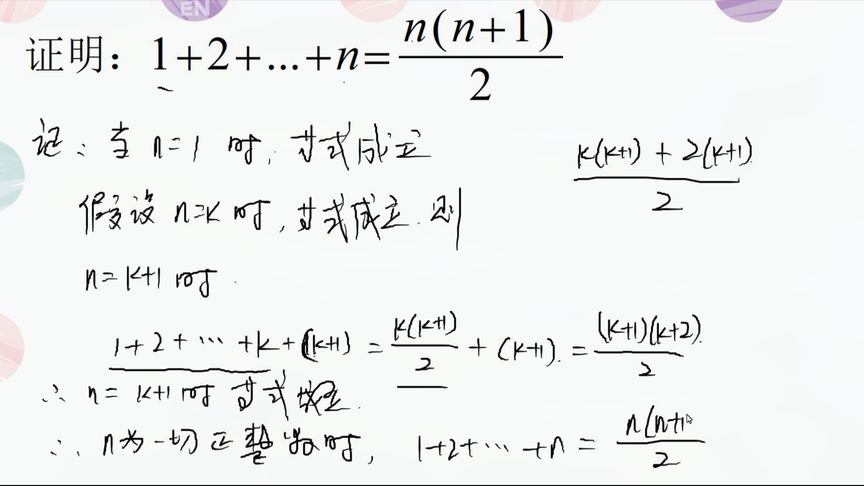 EN
证明：1+2+...+n=n(n+1)/2
记：当 n=1 时，等式成立
k(k+1)+2(k+1)/2
假设 n=k 时，等式成立. 则
n=k+1 时.
1+2+⋯+k+(k+1)=k(k+1)/2+(k+1).=(k+1)(k+2)/2
∴ n=k+1时 等式成立.
∴ n为一切正整数时，1+2+⋯+n=n(n+1/2